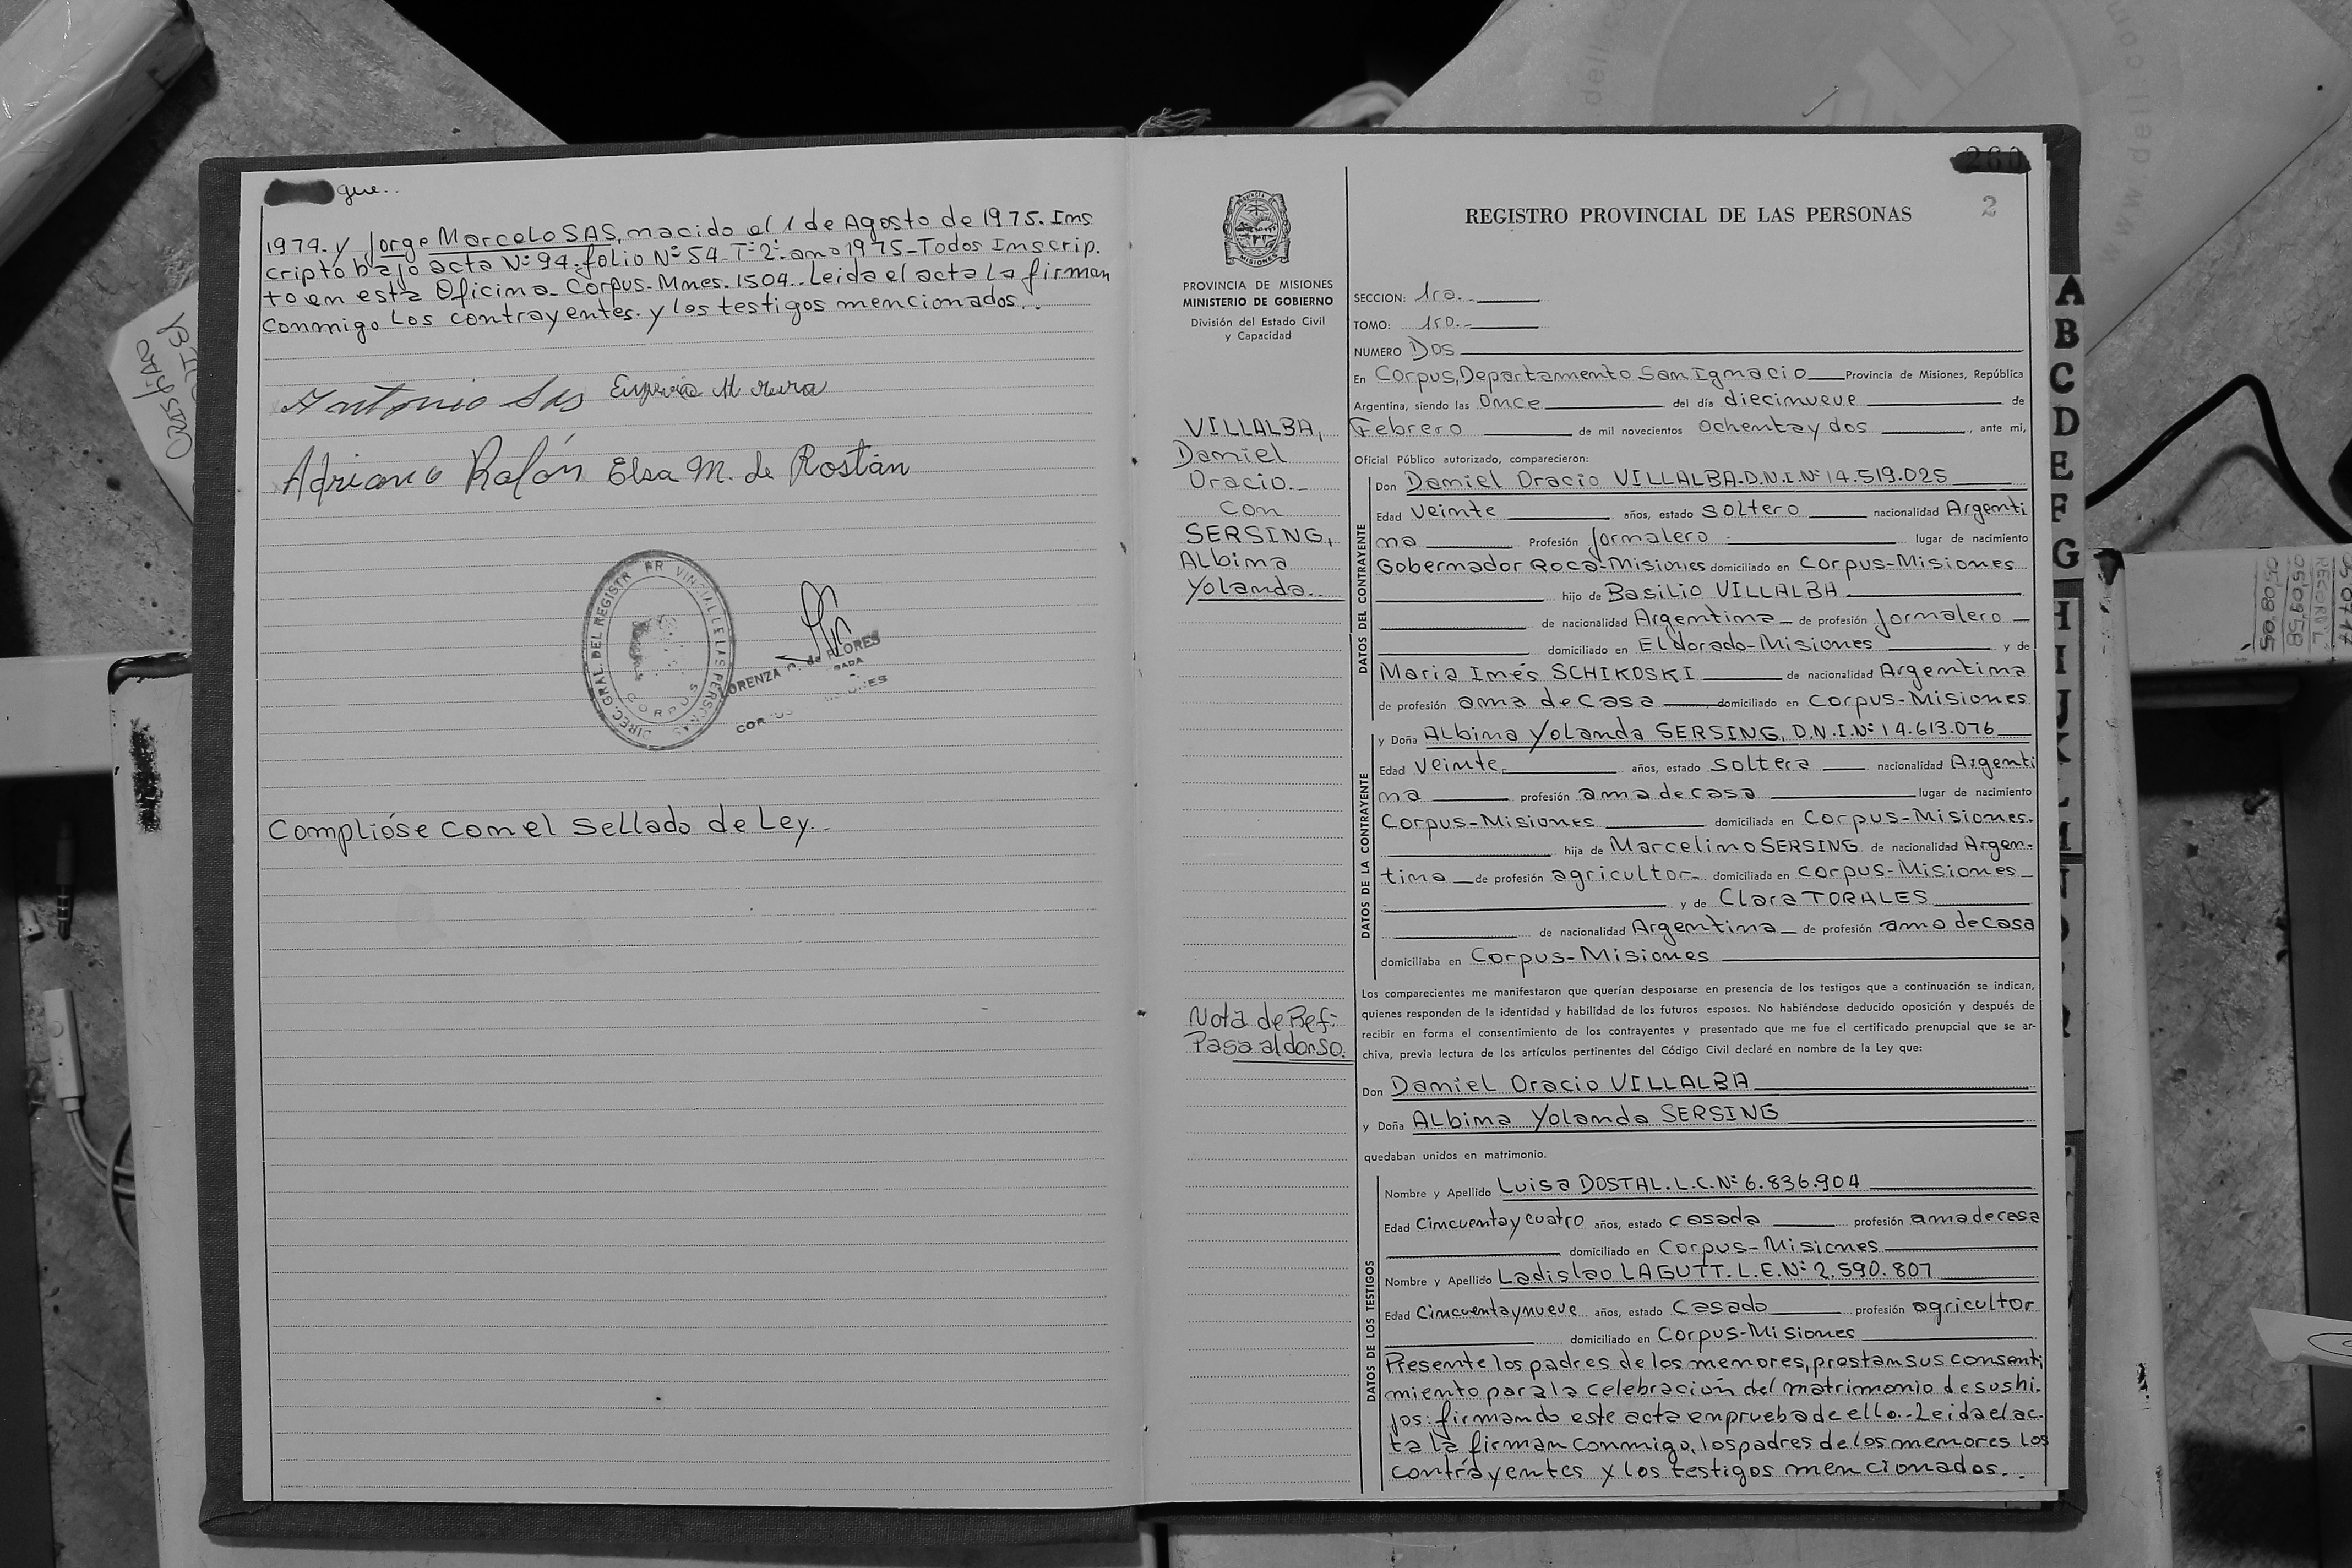 gue..
1979. y Jorge Marcelo SAS, nacido el 1 de Agosto de 1975. Ins
cripto bajo acta Nº 94. folio Nº 54 Tº 2º. ano 1975 - Todos Inscrip.
to en esta Oficina - Corpus. Mnes. 1504.. Leida el acta la firman
conmigo los contrayentes. y los testigos mencionados..
Antonio Sas
Adriano Rolón Elsa M. de Rostán
DIREC. GRAL. DEL REGISTR PR VINCIAL DE LAS PERSONAS
CORPUS
LORENZA de FLORES
Complióse con el Sellado de Ley..
260
2
PROVINCIA DE MISIONES
MINISTERIO DE GOBIERNO
División del Estado Civil
y Capacidad
VILLALBA,
Daniel
Oracio.-
Con
SERSING,
Albina
Yolanda..
Nota de Ref:
Pasa al dorso.
REGISTRO PROVINCIAL DE LAS PERSONAS
SECCION: 1ra.-
TOMO: 1ro.-
NUMERO Dos
En Corpus, Departamento San Ignacio Provincia de Misiones, República
Argentina, siendo las Once del día diecinueve de
Febrero de mil novecientos Ochenta y dos, ante mí,
Oficial Público autorizado, comparecieron:
DATOS DEL CONTRAYENTE
Don Daniel Oracio VILLALBA. D.N.I. Nº 14.519.025
Edad Veinte años, estado soltero nacionalidad Argenti
na Profesión Jornalero lugar de nacimiento
Gobernador Roca-Misiones domiciliado en Corpus-Misiones
hijo de Basilio VILLALBA
de nacionalidad Argentina de profesión Jornalero
domiciliado en Eldorado-Misiones y de
Maria Inés SCHIKOSKI de nacionalidad Argentina
de profesión ama de casa domiciliado en Corpus-Misiones
DATOS DE LA CONTRAYENTE
y Doña Albina Yolanda SERSING, D.N.I. Nº 14.613.076
Edad Veinte años, estado soltera nacionalidad Argenti
na profesión ama de casa lugar de nacimiento
Corpus-Misiones domiciliada en Corpus-Misiones.
hija de Marcelino SERSING de nacionalidad Argen-
tina de profesión agricultor domiciliada en Corpus-Misiones
y de Clara TORALES
de nacionalidad Argentina de profesión ama de casa
domiciliaba en Corpus-Misiones
Los comparecientes me manifestaron que querían desposarse en presencia de los testigos que a continuación se indican,
quienes responden de la identidad y habilidad de los futuros esposos. No habiéndose deducido oposición y después de
recibir en forma el consentimiento de los contrayentes y presentado que me fue el certificado prenupcial que se ar-
chiva, previa lectura de los artículos pertinentes del Código Civil declaré en nombre de la Ley que:
Don Daniel Oracio VILLALBA
y Doña Albina Yolanda SERSING
quedaban unidos en matrimonio.
DATOS DE LOS TESTIGOS
Nombre y Apellido Luisa DOSTAL. L.C. Nº 6.836.904
Edad Cincuenta y cuatro años, estado casada profesión ama de casa
domiciliado en Corpus-Misiones
Nombre y Apellido Ladislao LAGUTT. L.E. Nº 2.590.807
Edad Cincuenta y nueve años, estado Casado profesión agricultor
domiciliado en Corpus-Misiones
Presente los padres de los menores, prestan sus consenti
miento para la celebración del matrimonio de sus hi.
jos: firmando este acta en prueba de ello.- Leida el ac-
ta la firman conmigo, los padres de los menores los
contrayentes y los testigos mencionados..
A
B
C
D
E
F
G
H
I
www.dell.com